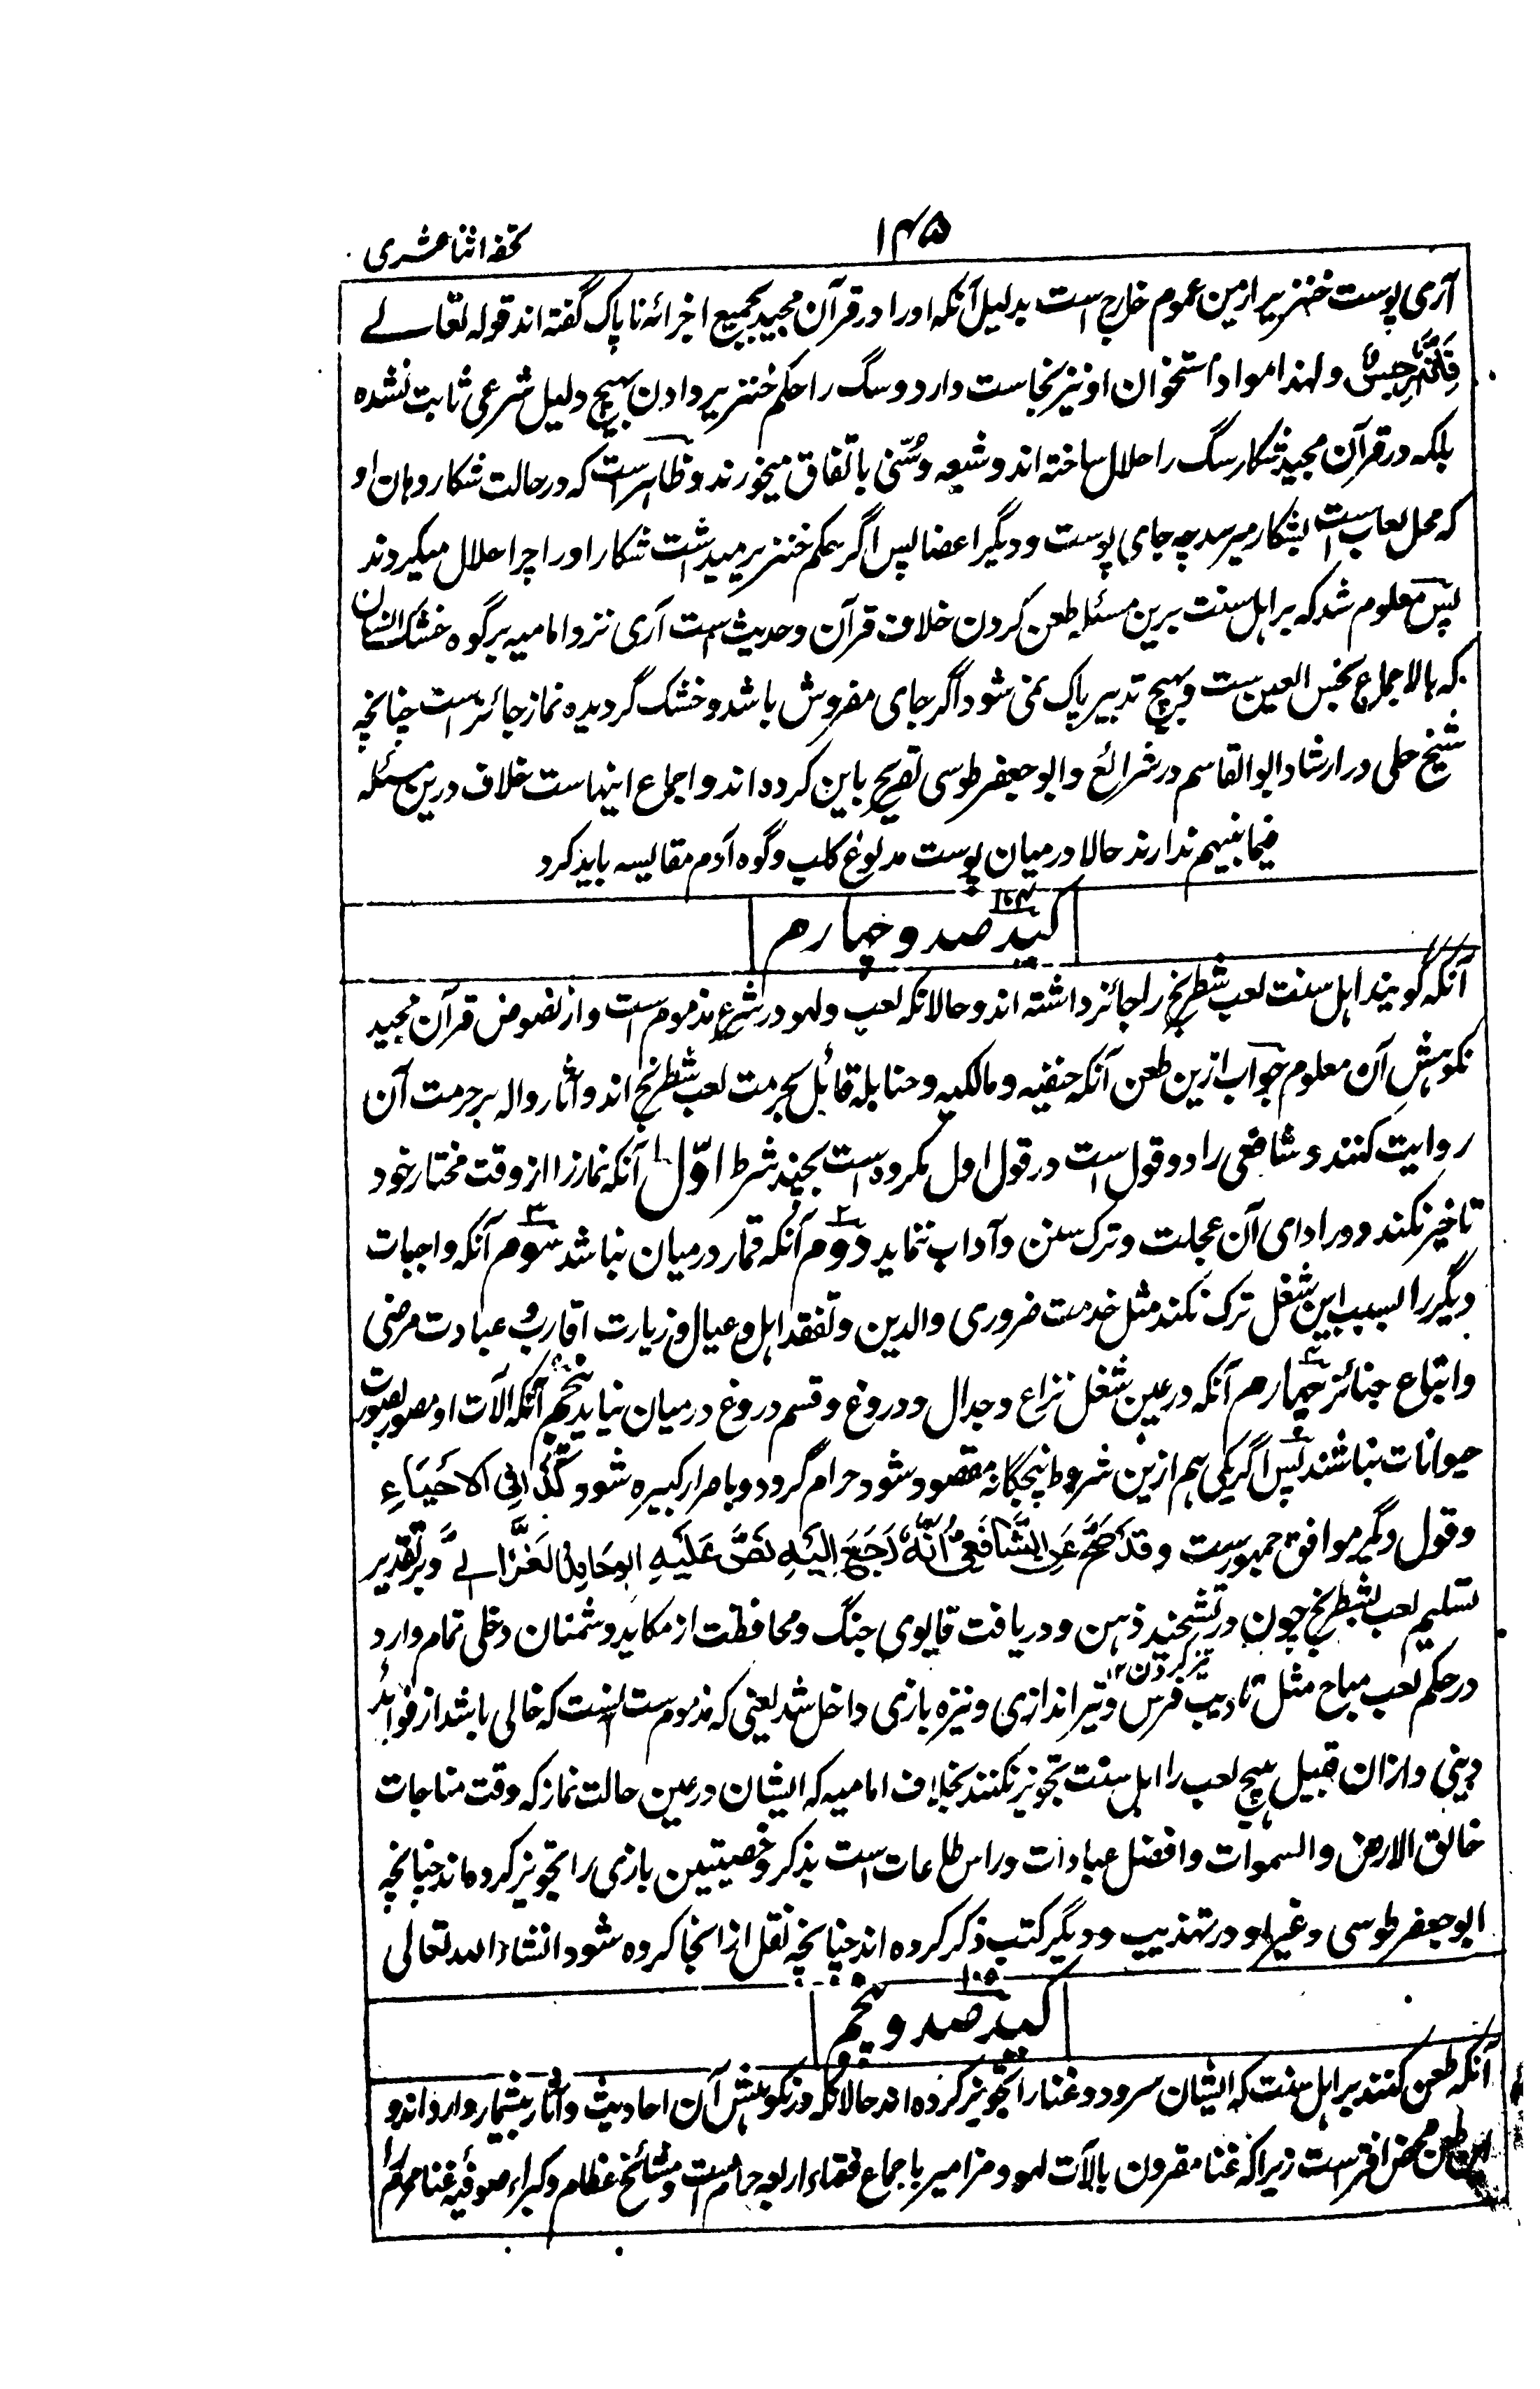 ۱۴۵
تحفه اثنا عشری
آری پوست خنزیر ازین عموم خارج است بدلیل آنکه او را در قرآن مجید بجمیع اجزائه ناپاک گفته اند قوله تعالے
فَاِنَّهٗ رِجْسٌ ولهذا مواد استخوان او نیز نجاست دارد و سگ را حکم خنزیر دادن بهیچ دلیل شرعی ثابت نشده
بلکه در قرآن مجید شکار سگ را حلال ساخته اند و شیعه و سُنّی باتفاق میخورند و ظاهر است که در حالت شکار دهان او
که محل لعاب است بشکار میرسد چه جای پوست و دیگر اعضا پس اگر حکم خنزیر میداشت شکار او را چرا حلال میکردند
پس معلوم شد که بر اهل سنت برین مسئله طعن کردن خلاف قرآن و حدیث است آری نزد امامیه بر گوه خشک انسان
که بالاجماع نجس العین ست و بهیچ تدبیر پاک نمی شود اگر جای مفروش باشد و خشک گردیده نماز جائز است چنانچه
شیخ حلی در ارشاد و ابو القاسم در شرائع و ابو جعفر طوسی تصریح باین کرده اند و اجماع اینهاست خلاف درین مسئله
فیما بینهم ندارند حالا درمیان پوست مدبوغ کلب و گوه آدم مقایسه باید کرد
۱۰۴
کید صد و چهارم
آنکه گویند اهل سنت لعب شطرنج را جائز داشته اند و حالانکه لعب و لهو در شرع مذموم است و از نصوص قرآن مجید
نکوهش آن معلوم جواب ازین طعن آنکه حنفیه و مالکیه و حنابله قائل بحرمت لعب شطرنج اند و آثار داله بر حرمت آن
روایت کنند و شافعی را دو قول است در قول اول مکروه است بچند شرط اوّل آنکه نماز را از وقت مختار خود
تاخیر نکند و در ادای آن عجلت و ترک سنن و آداب ننماید دوم آنکه قمار درمیان نباشد سوم آنکه واجبات
دیگر را بسبب این شغل ترک نکند مثل خدمت ضروری والدین و تفقد اهل و عیال و زیارت اقارب و عیادت مرضی
و اتباع جنائز چهارم آنکه در عین شغل نزاع و جدال و دروغ و قسم دروغ درمیان نیاید پنجم آنکه آلات او مصور بصورت
حیوانات نباشند پس اگر یکی هم ازین شروط پنجگانه مفقود شود حرام گردد و باصرار کبیره شود کَذَا فِی الاحیَاءِ
و قول دیگر موافق جمهور ست وقَد صَحَّ عَنِ الشَّافعِی اَنَّهٗ رَجَعَ اِلَیهِ نَصَّ عَلَیهِ ابو حَامِدِ الغَزَّالےُّ و بر تقدیر
تسلیم لعب شطرنج چون در تشحیذ ذهن و دریافت قابوی جنگ و محافظت از مکاید دشمنان دخلی تمام دارد
تیز کردن ۱۲
در حکم لعب مباح مثل تادیب فرس و تیر اندازی و نیزه بازی داخل شد لعبی که مذموم ست آنست که خالی باشد از فوائد
دینی و ازان قبیل هیچ لعب را اهل سنت تجویز نکنند بخلاف امامیه که ایشان در عین حالت نماز که وقت مناجات
خالق الارض والسموات و افضل عبادات و راس طاعات است بذکر و خصیتین بازی را تجویز کرده اند چنانچه
ابو جعفر طوسی و غیر او در تهذیب و دیگر کتب ذکر کرده اند چنانچه نقل از آنجا کرده شود انشاء الله تعالی
۱۰۵
کید صد و پنجم
آنکه طعن کنند بر اهل سنت که ایشان سرود و غنا را تجویز کرده اند حالانکه در نکوهش آن احادیث و آثار بیشمار وارد اند و
این طعن محض افتراست زیرا که غنا مقرون بالآت لهو و مزامیر باجماع فقهاء اربعه حرام است و مشائخ عظام و کبراء صوفیه غنا